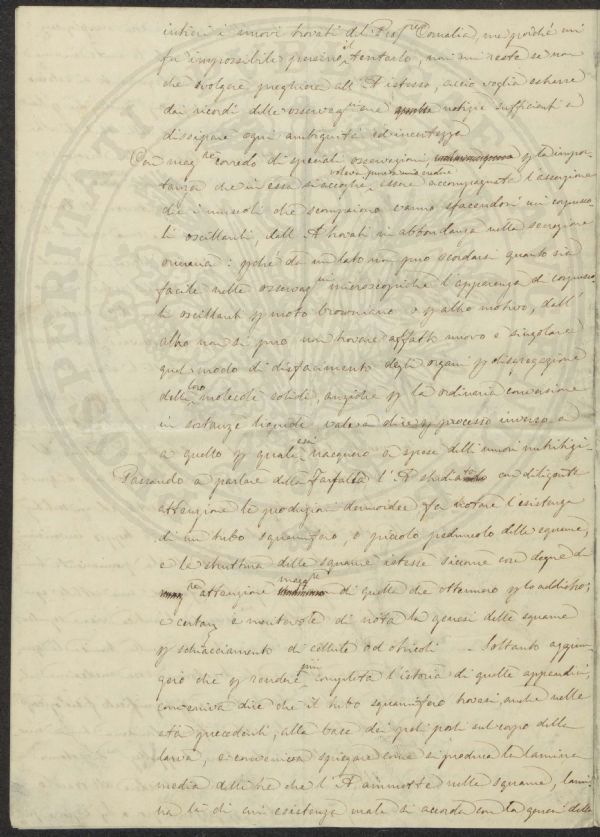 interi i nuovi trovati del Prof.re Cornalia, ma poichè mi
fu impossibile persino il tentarlo, non mi resta se non
che svolgere preghiera all'A istesso, acciò voglia estrarre
dai ricordi delle osservaz.ni sue notizie sufficienti a
dissipare ogni ambiguità ed incertezza
Con mag.re corredo di speciali osservazioni, p la impor-
tanza che in essa si accoglie, voleva pure a mio credere essere accompagnata l'asserzione
che i muscoli che scompaiono vanno sfacendosi in corpusco-
li oscillanti, dall'A trovati in abbondanza nella secrezione
orinaria: pchè da un lato non può scordarsi quanto sia
facile nelle osservaz.ni microscopiche l'apparenza di corpusco-
li oscillanti p moto browniano o p altro motivo, dall'
altro non si può non trovare affatto nuovo e singolare
quel modo di disfacimento degli organi p disgregazione
delle loro molecole solide, anzichè p la ordinaria conversione
in sostanze liquide valea dire p processo inverso a
a quello p quale essi nacquero a spese delli umori nutritizi.
Passando a parlare della Farfalla l'A studia con diligente
attenzione le produzioni dermoidee fa notare l'esistenza
di un tubo squamifero, o piccolo peduncolo delle squame,
e la struttura delle squame istesse siccome cose degne di
attenzione mag.re di quella che ottennero p lo addietro;
e certam.e è meritevole di nota la genesi delle squame
p schiacciamento di cellule od otricoli. Soltanto aggiun-
gerò che p rendere più completa l'istoria di quelle appendici,
conveniva dire che il tubo squamifero trovasi, anche nelle
età precedenti, alla base dei peli posti sul corpo della
larva, e conveniva spiegare come si produca la lamina
media delle tre che l'A. ammette nelle squame, lami-
na la di cui esistenza male si accorda con la genesi delle